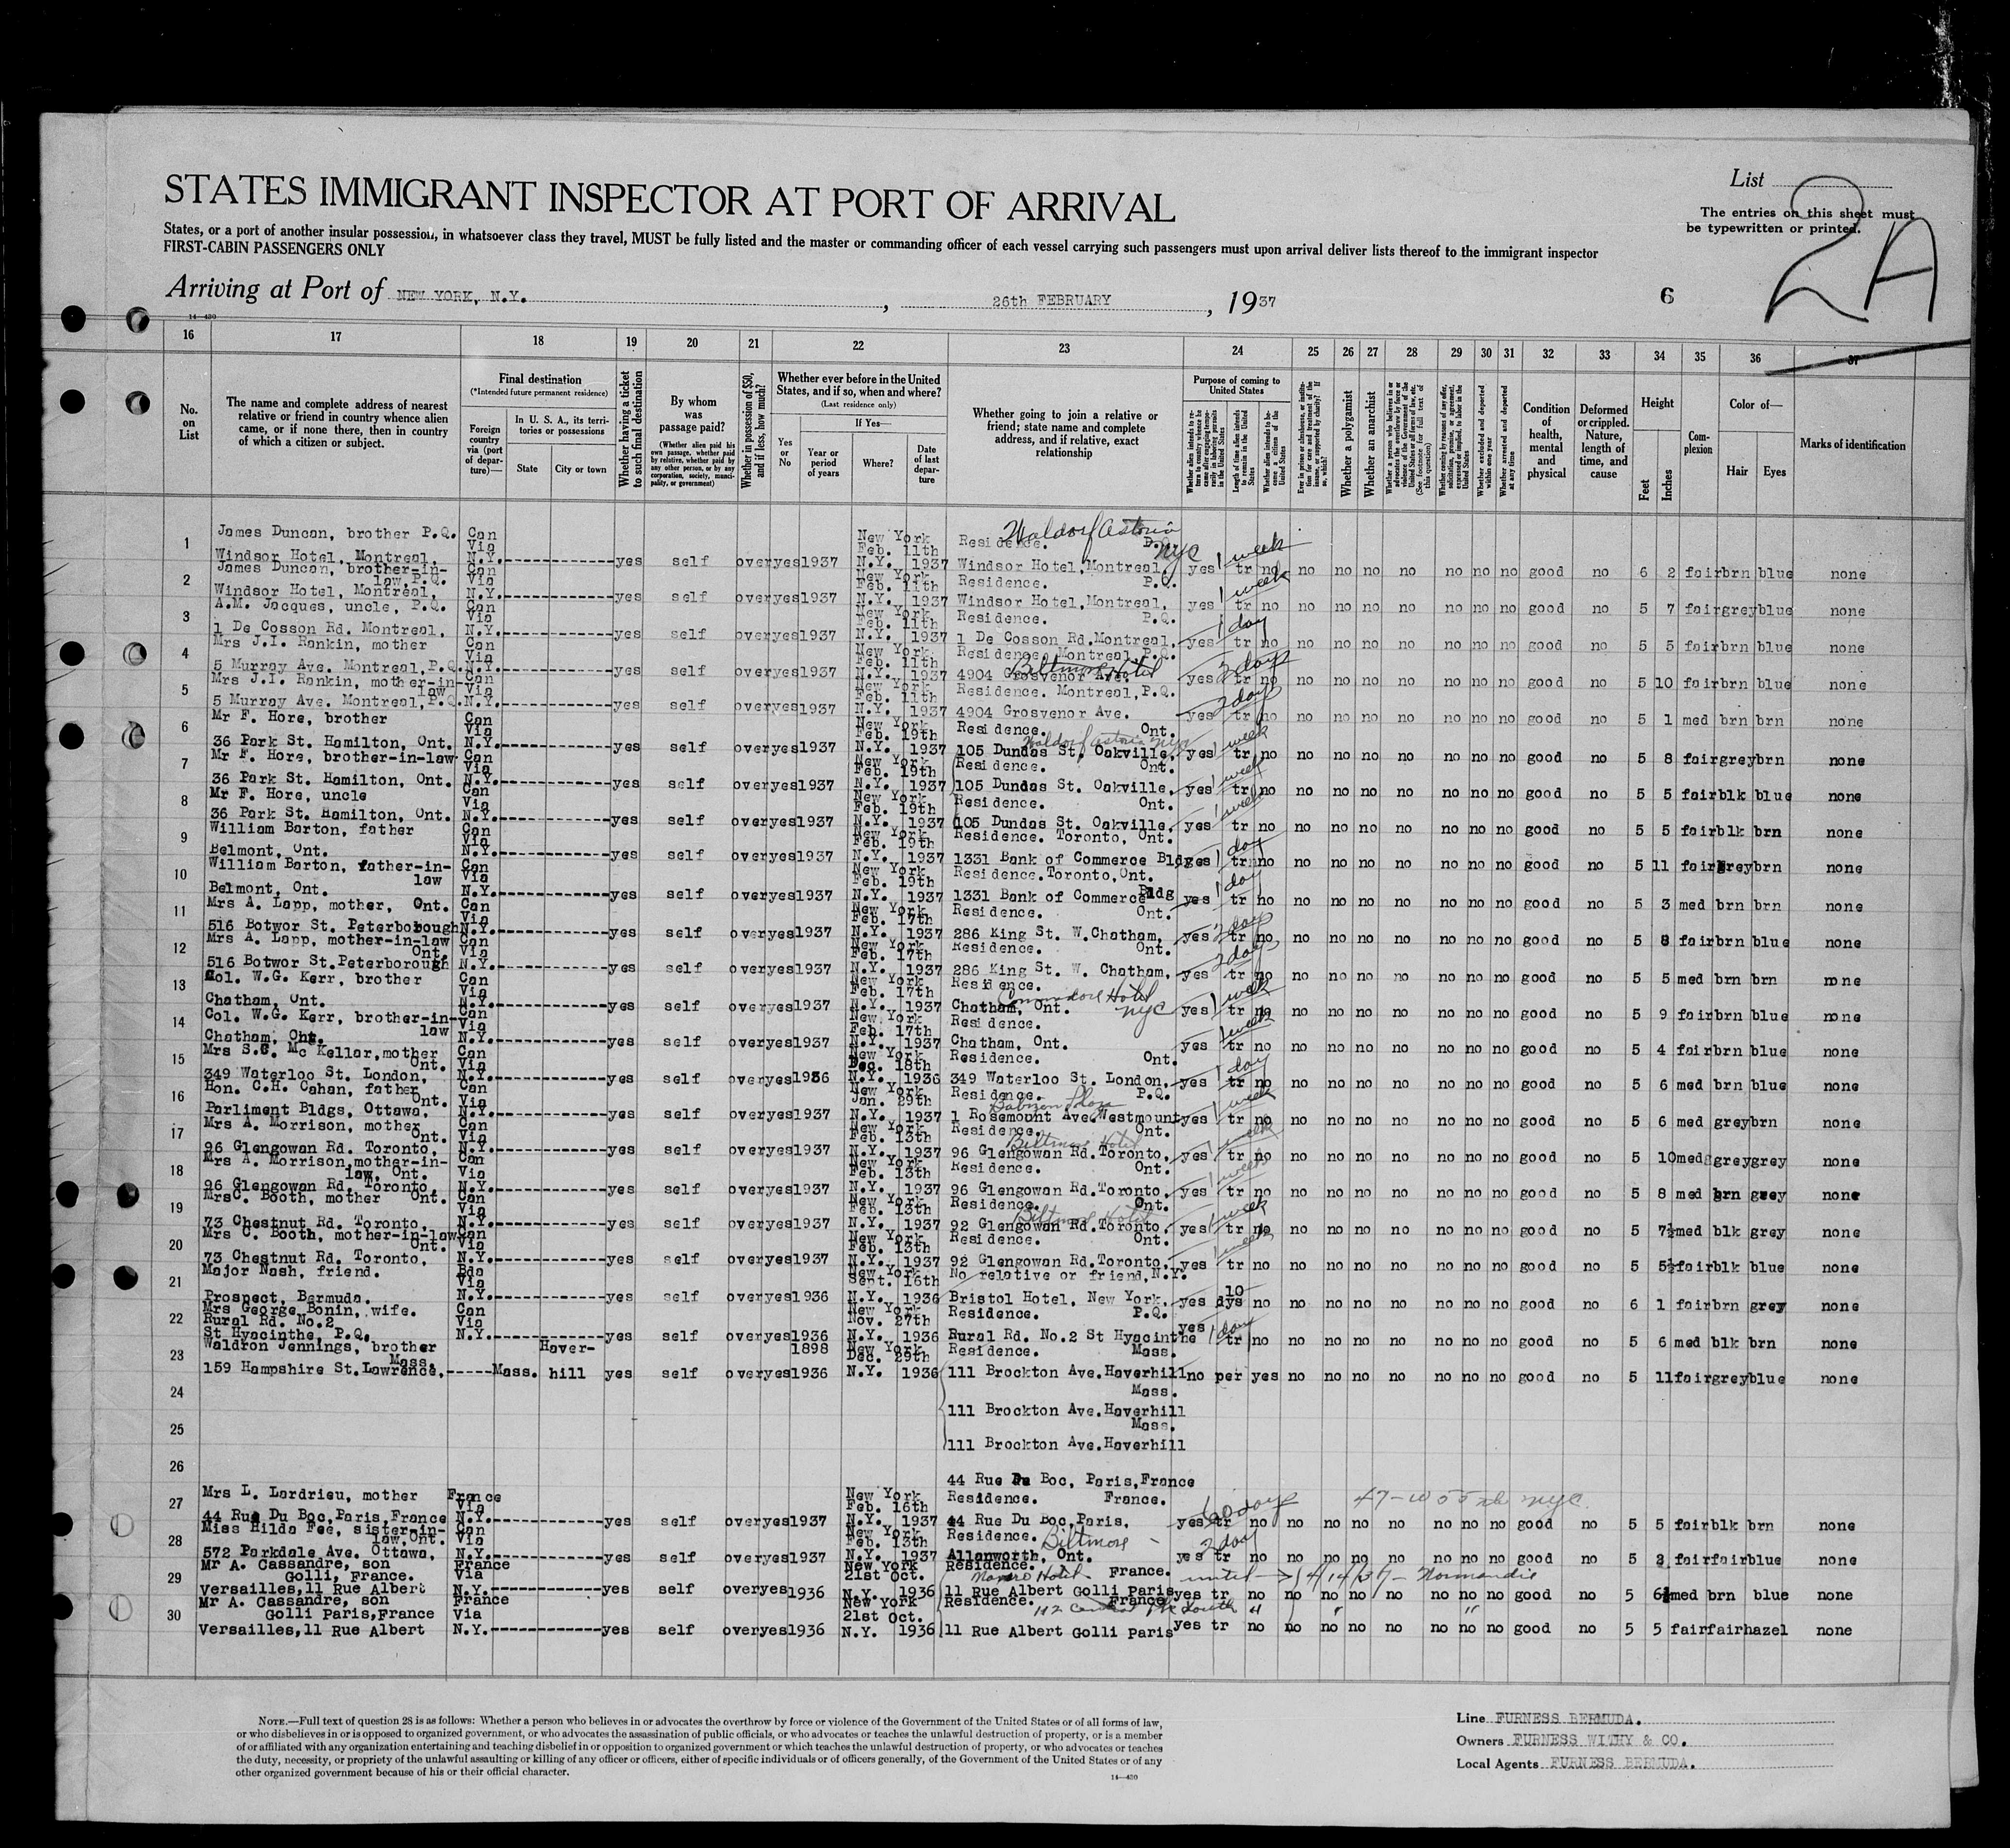 STATES IMMIGRANT INSPECTOR AT PORT OF ARRIVAL
List
2A
The entries on this sheet must
be typewritten or printed.
States, or a port of another insular possession, in whatsoever class they travel, MUST be fully listed and the master or commanding officer of each vessel carrying such passengers must upon arrival deliver lists thereof to the immigrant inspector
FIRST-CABIN PASSENGERS ONLY
Arriving at Port of NEW YORK, N.Y. , 26th FEBRUARY , 1937
6
14—430
16 17 18 19 20 21 22 23 24 25 26 27 28 29 30 31 32 33 34 35 36 37
No. on List
The name and complete address of nearest relative or friend in country whence alien came, or if none there, then in country of which a citizen or subject.
Final destination
(*Intended future permanent residence)
Foreign country via (port of departure)—
In U. S. A., its territories or possessions
State
City or town
Whether having a ticket to such final destination
By whom was passage paid?
(Whether alien paid his own passage, whether paid by relative, whether paid by any other person, or by any corporation, society, municipality, or government)
Whether in possession of $50, and if less, how much?
Whether ever before in the United States, and if so, when and where?
(Last residence only)
Yes or No
If Yes—
Year or period of years
Where?
Date of last departure
Whether going to join a relative or friend; state name and complete address, and if relative, exact relationship
Purpose of coming to United States
Length of time alien intends to remain in the United States
Whether alien intends to become a citizen of the United States
Whether a polygamist
Whether an anarchist
Whether excluded and deported within one year
Whether arrested and deported at any time
Condition of health, mental and physical
Deformed or crippled. Nature, length of time, and cause
Height
Feet
Inches
Complexion
Color of—
Hair
Eyes
Marks of identification
1 James Duncan, brother P.Q. Can Via New York Feb. 11th Residence. Waldorf Astoria NYC 1 week
Windsor Hotel, Montreal, N.Y. yes self over yes 1937 N.Y. 1937 Windsor Hotel, Montreal, yes tr no no no no no no no no good no 6 2 fair brn blue none
2 James Duncan, brother-in-law, P.Q. Can Via New York Feb. 11th Residence. P.Q. 1 week
Windsor Hotel, Montreal, N.Y. yes self over yes 1937 N.Y. 1937 Windsor Hotel, Montreal, yes tr no no no no no no no no good no 5 7 fair grey blue none
3 A.M. Jacques, uncle, P.Q. Can Via New York Feb. 11th Residence. P.Q. 1 day
1 De Cosson Rd. Montreal, N.Y. yes self over yes 1937 N.Y. 1937 1 De Cosson Rd. Montreal, yes tr no no no no no no no no good no 5 5 fair brn blue none
4 Mrs J.I. Rankin, mother Can Via New York Feb. 11th Residence. Montreal, P.Q. Biltmore Hotel 2 days
5 Murray Ave. Montreal, P.Q. N.Y. yes self over yes 1937 N.Y. 1937 4904 Grosvenor Ave. yes tr no no no no no no no no good no 5 10 fair brn blue none
5 Mrs J.I. Rankin, mother-in-law Can Via New York Feb. 11th Residence. Montreal, P.Q. 2 days
5 Murray Ave. Montreal, P.Q. N.Y. yes self over yes 1937 N.Y. 1937 4904 Grosvenor Ave. yes tr no no no no no no no no good no 5 1 med brn brn none
6 Mr F. Hore, brother Can Via New York Feb. 19th Residence. Ont. Waldorf Astoria NYC 1 week
36 Park St. Hamilton, Ont. N.Y. yes self over yes 1937 N.Y. 1937 105 Dundas St. Oakville, yes tr no no no no no no no no good no 5 8 fair grey brn none
7 Mr F. Hore, brother-in-law Can Via New York Feb. 19th Residence. Ont. 1 week
36 Park St. Hamilton, Ont. N.Y. yes self over yes 1937 N.Y. 1937 105 Dundas St. Oakville, yes tr no no no no no no no no good no 5 5 fair blk blue none
8 Mr F. Hore, uncle Can Via New York Feb. 19th Residence. Ont. 1 week
36 Park St. Hamilton, Ont. N.Y. yes self over yes 1937 N.Y. 1937 105 Dundas St. Oakville, yes tr no no no no no no no no good no 5 5 fair blk brn none
9 William Barton, father Can Via New York Feb. 19th Residence. Toronto, Ont. 1 day
Belmont, Ont. N.Y. yes self over yes 1937 N.Y. 1937 1331 Bank of Commerce Bldg yes tr no no no no no no no no good no 5 11 fair grey brn none
10 William Barton, father-in-law Can Via New York Feb. 19th Residence. Toronto, Ont. 1 day
Belmont, Ont. N.Y. yes self over yes 1937 N.Y. 1937 1331 Bank of Commerce Bldg yes tr no no no no no no no no good no 5 3 med brn brn none
11 Mrs A. Lapp, mother, Ont. Can Via New York Feb. 17th Residence. Ont. 2 days
516 Botwor St. Peterborough N.Y. yes self over yes 1937 N.Y. 1937 286 King St. W. Chatham, yes tr no no no no no no no no good no 5 8 fair brn blue none
12 Mrs A. Lapp, mother-in-law Ont. Can Via New York Feb. 17th Residence. Ont. 2 days
516 Botwor St. Peterborough N.Y. yes self over yes 1937 N.Y. 1937 286 King St. W. Chatham, yes tr no no no no no no no no good no 5 5 med brn brn none
13 Col. W.G. Kerr, brother Can Via New York Feb. 17th Residence. Commodore Hotel NYC 1 week
Chatham, Ont. N.Y. yes self over yes 1937 N.Y. 1937 Chatham, Ont. yes tr no no no no no no no no good no 5 9 fair brn blue none
14 Col. W.G. Kerr, brother-in-law Can Via New York Feb. 17th Residence. 1 week
Chatham, Ont. N.Y. yes self over yes 1937 N.Y. 1937 Chatham, Ont. yes tr no no no no no no no no good no 5 4 fair brn blue none
15 Mrs S.G. Mc Kellar, mother Ont. Can Via New York Dec. 18th Residence. Ont. 1 day
349 Waterloo St. London, N.Y. yes self over yes 1936 N.Y. 1936 349 Waterloo St. London, yes tr no no no no no no no no good no 5 6 med brn blue none
16 Hon. C.H. Cahan, father Ont. Can Via New York Jan. 29th Residence. P.Q. 1 week
Parliment Bldgs, Ottawa, N.Y. yes self over yes 1937 N.Y. 1937 1 Rosemount Ave. Westmount yes tr no no no no no no no no good no 5 6 med grey brn none
17 Mrs A. Morrison, mother Ont. Can Via New York Feb. 13th Residence. Ont. Biltmore Hotel 1 week
96 Glengowan Rd. Toronto, N.Y. yes self over yes 1937 N.Y. 1937 96 Glengowan Rd. Toronto, yes tr no no no no no no no no good no 5 10 med grey grey none
18 Mrs A. Morrison, mother-in-law, Ont. Can Via New York Feb. 13th Residence. Ont. 1 week
96 Glengowan Rd. Toronto, N.Y. yes self over yes 1937 N.Y. 1937 96 Glengowan Rd. Toronto, yes tr no no no no no no no no good no 5 8 med brn grey none
19 Mrs C. Booth, mother Ont. Can Via New York Feb. 13th Residence. Ont. Biltmore Hotel 1 week
73 Chestnut Rd. Toronto, N.Y. yes self over yes 1937 N.Y. 1937 92 Glengowan Rd. Toronto. yes tr no no no no no no no no good no 5 7½ med blk grey none
20 Mrs C. Booth, mother-in-law Ont. Can Via New York Feb. 13th Residence. Ont. 1 week
73 Chestnut Rd. Toronto, N.Y. yes self over yes 1937 N.Y. 1937 92 Glengowan Rd. Toronto, yes tr no no no no no no no no good no 5 5½ fair blk blue none
21 Major Nash, friend. Bda Via New York Sept. 16th No relative or friend, N.Y.
Prospect, Bermuda. N.Y. yes self over yes 1936 N.Y. 1936 Bristol Hotel, New York, yes 10 dys no no no no no no no no good no 6 1 fair brn grey none
22 Mrs George Bonin, wife. Can Via New York Nov. 27th Residence. P.Q.
Rural Rd. No.2
St Hyacinthe, P.Q. N.Y. yes self over yes 1936 N.Y. 1936 Rural Rd. No.2 St Hyacinthe yes 1 day tr no no no no no no no no good no 5 6 med blk brn none
23 Waldron Jennings, brother Mass. Haver- 1898 New York Dec. 29th Residence. Mass.
159 Hampshire St. Lawrence, Mass. hill yes self over yes 1936 N.Y. 1936 111 Brockton Ave. Haverhill no per yes no no no no no no no good no 5 11 fair grey blue none
24 Mass.
111 Brockton Ave. Haverhill
25 Mass.
111 Brockton Ave. Haverhill
26 44 Rue Du Bac, Paris, France
27 Mrs L. Lardrieu, mother France Via New York Feb. 16th Residence. France. 60 days
44 Rue Du Boc, Paris, France N.Y. yes self over yes 1937 N.Y. 1937 44 Rue Du Boc, Paris, yes tr no no no no no no no no good no 5 5 fair blk brn none
28 Miss Hilda Fee, sister-in-law, Ont. Can Via New York Feb. 13th Residence. Biltmore 2 days
572 Parkdale Ave. Ottawa, N.Y. yes self over yes 1937 N.Y. 1937 Allanworth, Ont. yes tr no no no no no no no no good no 5 2 fair fair blue none
29 Mr A. Cassandre, son France Via New York 21st Oct. Residence. France. Hotel 4/14/37 Normandie
Golli, France.
Versailles, 11 Rue Albert N.Y. yes self over yes 1936 N.Y. 1936 11 Rue Albert Golli Paris yes tr no no no no no no no no good no 5 6½ med brn blue none
30 Mr A. Cassandre, son France Via New York 21st Oct. Residence. France 112 Central Pk South
Golli Paris, France
Versailles, 11 Rue Albert N.Y. yes self over yes 1936 N.Y. 1936 11 Rue Albert Golli Paris yes tr no no no no no no no no good no 5 5 fair fair hazel none
NOTE.—Full text of question 28 is as follows: Whether a person who believes in or advocates the overthrow by force or violence of the Government of the United States or of all forms of law,
or who disbelieves in or is opposed to organized government, or who advocates the assassination of public officials, or who advocates or teaches the unlawful destruction of property, or is a member
of or affiliated with any organization entertaining and teaching disbelief in or opposition to organized government or which teaches the unlawful destruction of property, or who advocates or teaches
the duty, necessity, or propriety of the unlawful assaulting or killing of any officer or officers, either of specific individuals or of officers generally, of the Government of the United States or of any
other organized government because of his or their official character.
14—430
Line FURNESS BERMUDA.
Owners FURNESS WITHY & CO.
Local Agents FURNESS BERMUDA.